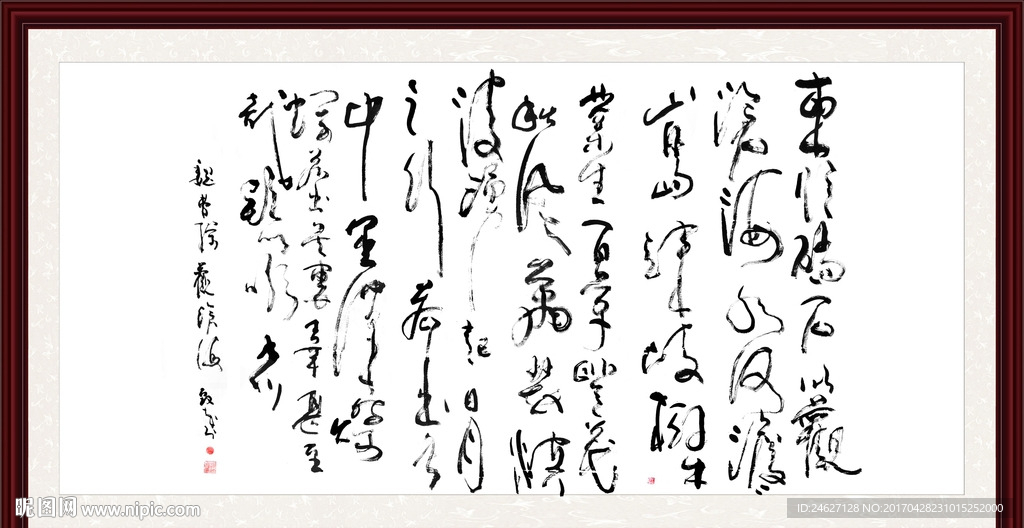 東臨碣石以觀
滄海水何澹澹
山島竦峙樹木
叢生百草豐茂
秋風蕭瑟洪
波湧起日月
之行若出其
中星漢燦
爛若出其裏幸甚至
哉歌以詠志
魏曹操觀滄海
昵图网 www.nipic.com
ID:24627128 NO:20170428231015252000